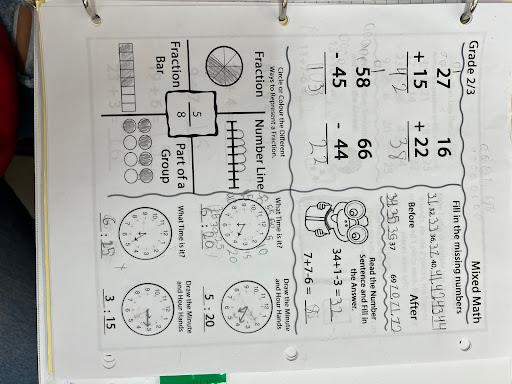 Grade 2/3
Mixed Math
27
+ 15
42
16
+ 22
38
58
- 45
103
66
- 44
22
Fill in the missing numbers
31, 32, 33 36, 37, 40, 41, 42 43 44
Before
After
34, 35, 36 37
69 70, 71, 72
Read the Number
Sentence and Fill in
the Answer.
34+1-3 = 32
7+7-6 =
Circle or Colour the Different
Ways to Represent a Fraction.
Fraction
Number Line
5
8
Fraction
Bar
Part of a
Group
What Time is it?
6 : 20
Draw the Minute
and Hour Hands
5 : 20
What Time is it?
6 : 25
Draw the Minute
and Hour Hands
3 : 15